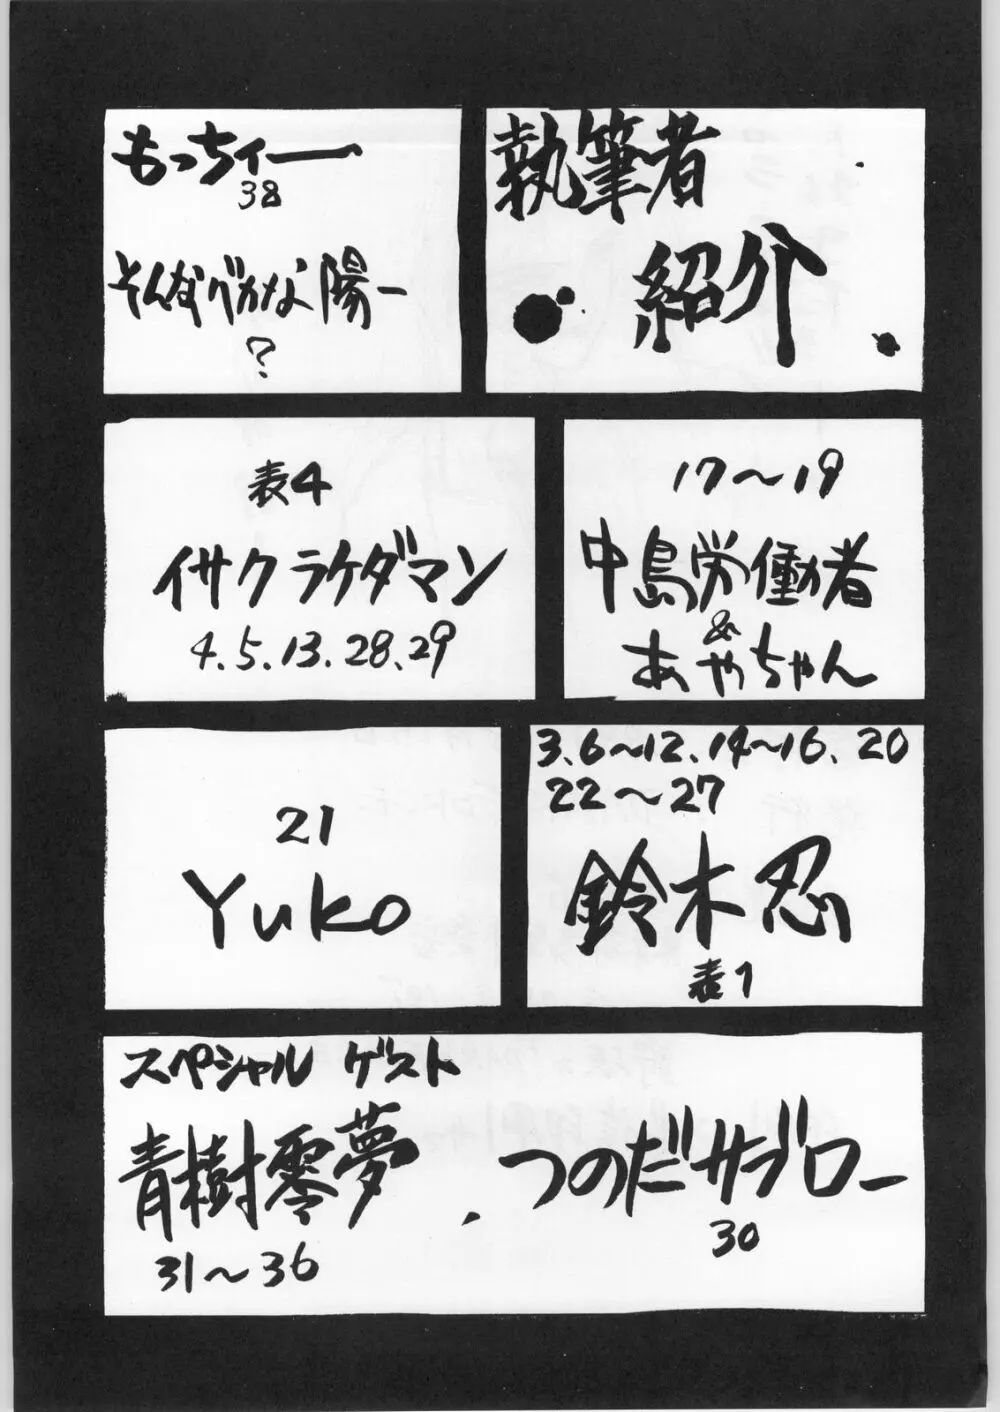 執筆者
紹介
もっちィー
38
そんなバカな 陽一
?
17〜19
中島労働者
&
あやちゃん
表4
イサク ラケダマン
4.5.13.28.29
3.6〜12.14〜16.20
22〜27
鈴木忍
表1
21
Yuko
スペシャル ゲスト
青樹零夢
31〜36
つのだサブロー
30